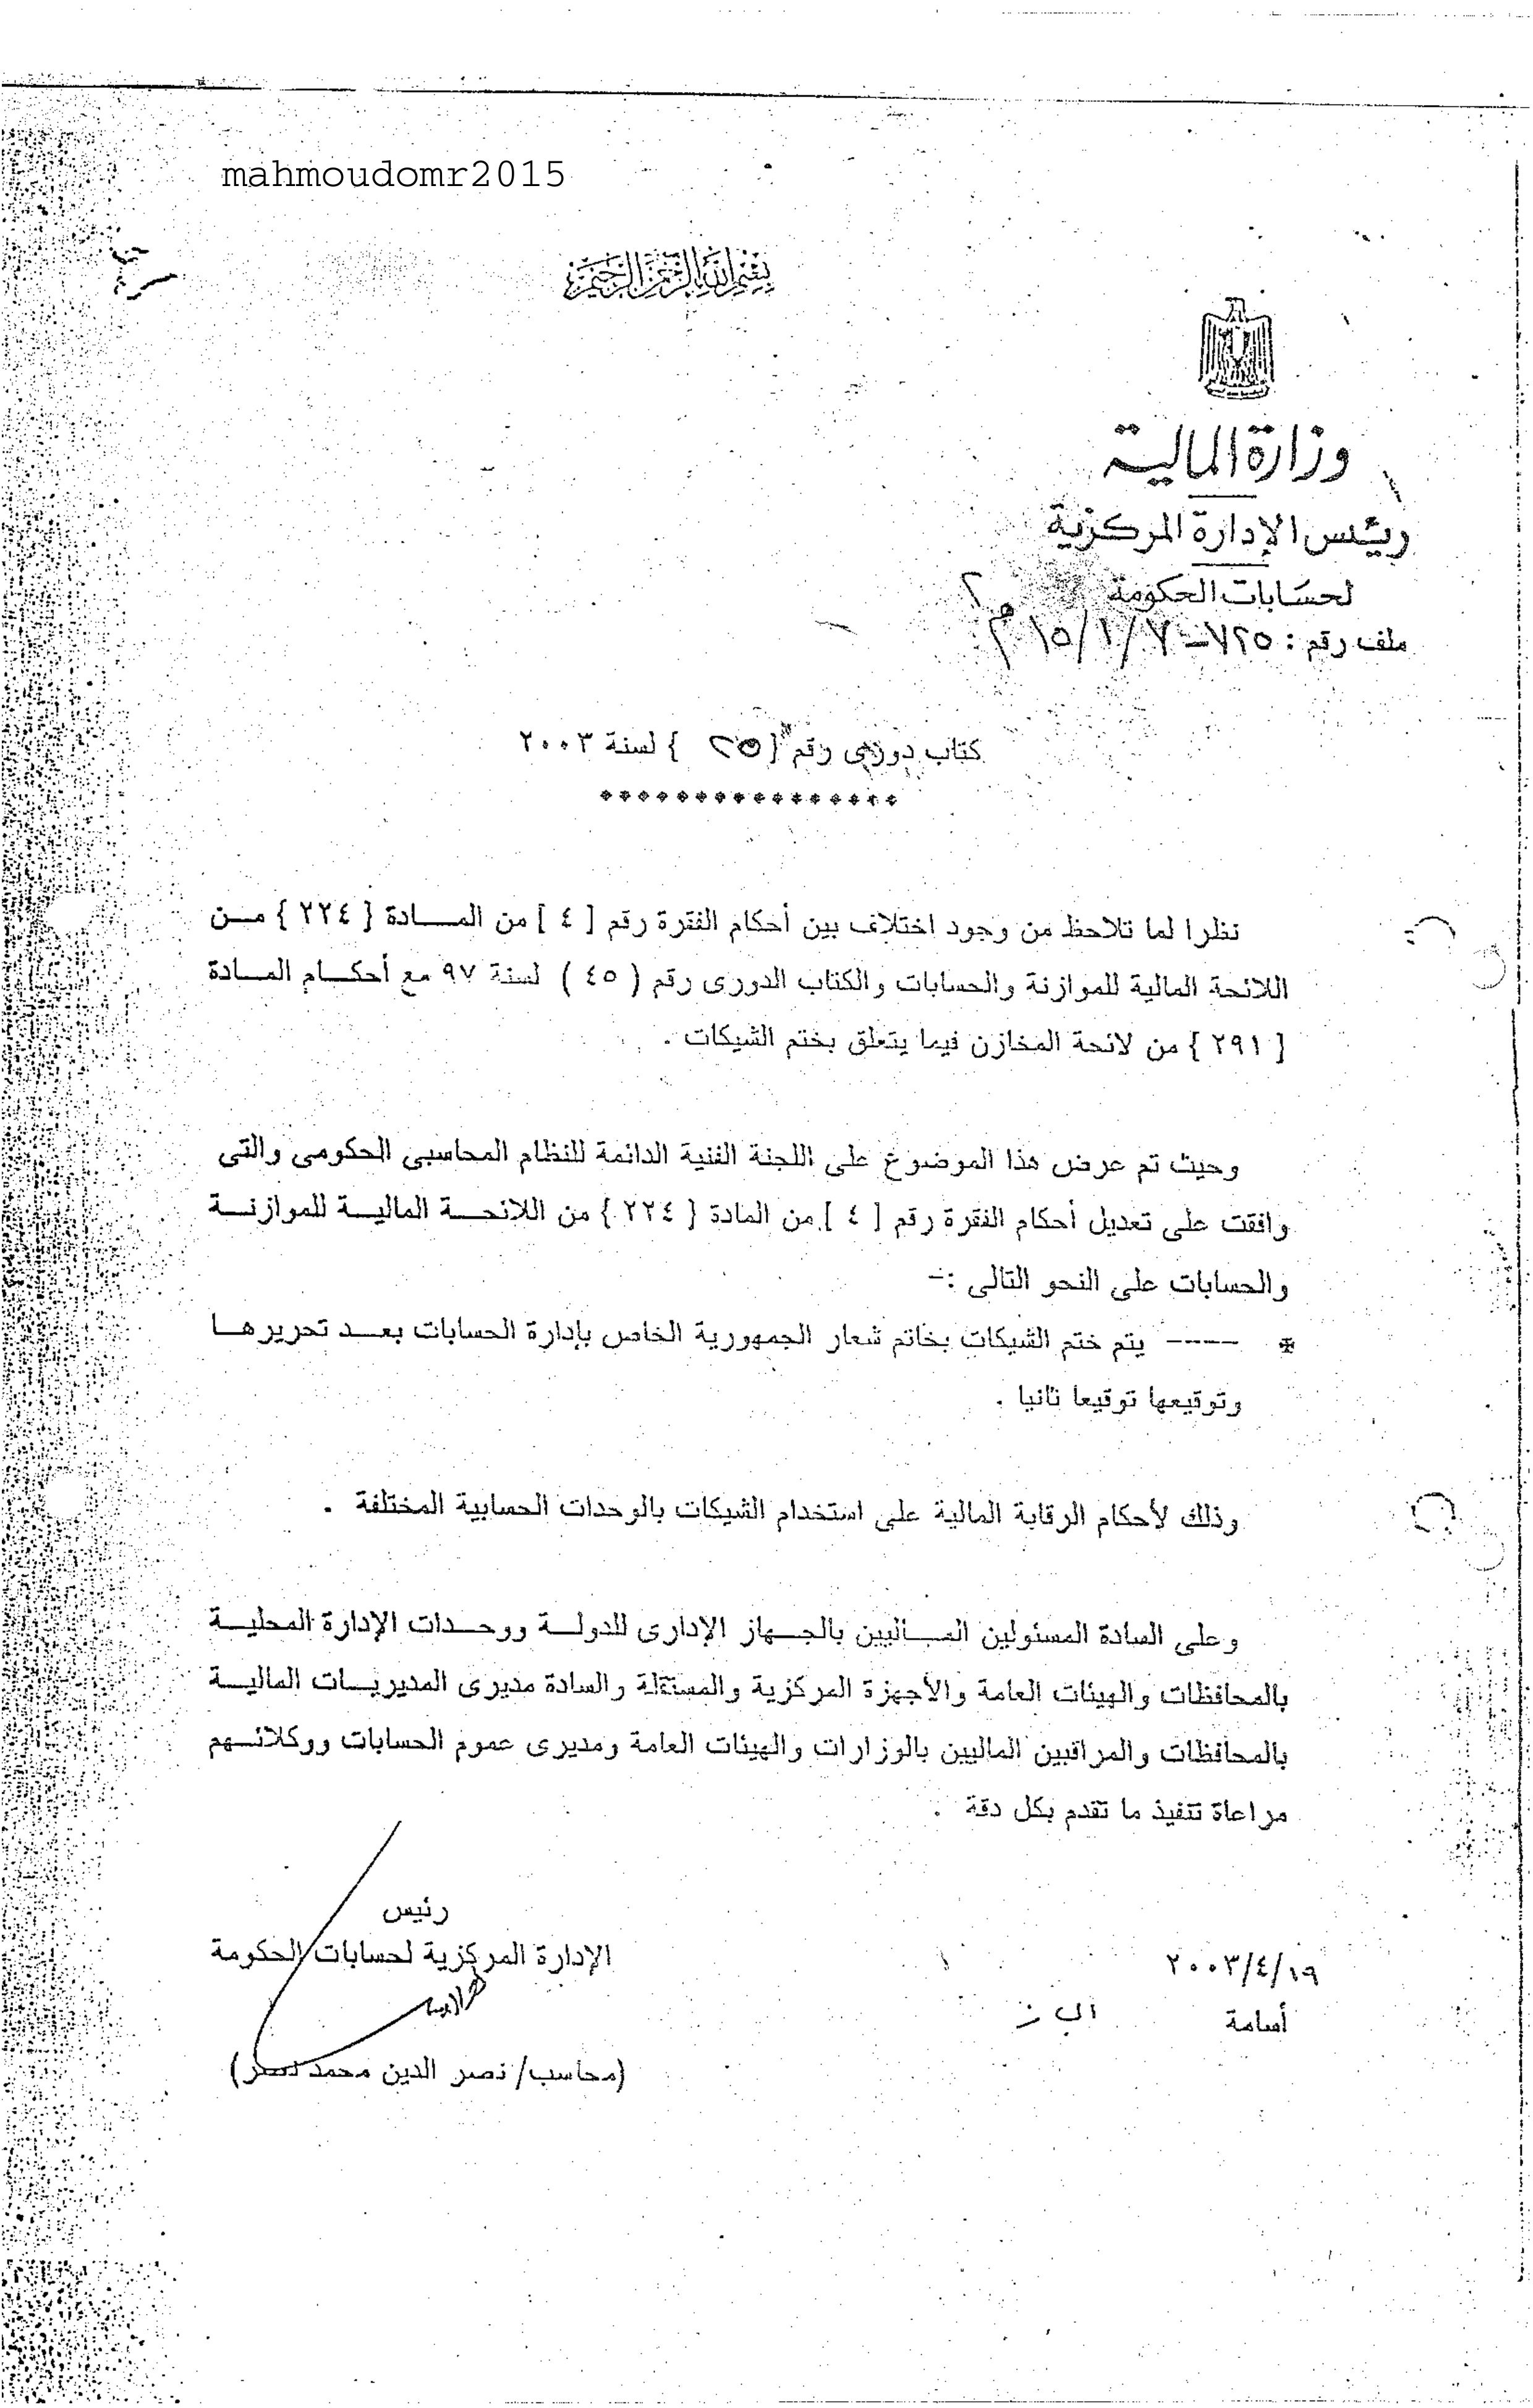 mahmoudomr2015
بسم الله الرحمن الرحيم
وزارة المالية
رئيس الإدارة المركزية
لحسابات الحكومة
ملف رقم : ٧٢٥ – ٧ / ١ / ١٥ م
كتاب دورى رقم { ٢٥ } لسنة ٢٠٠٣
****************
نظرا لما تلاحظ من وجود اختلاف بين أحكام الفقرة رقم [ ٤ ] من المـــادة { ٢٢٤ } مــن
اللائحة المالية للموازنة والحسابات والكتاب الدورى رقم ( ٤٥ ) لسنة ٩٧ مع أحكــام المــادة
{ ٢٩١ } من لائحة المخازن فيما يتعلق بختم الشيكات .
وحيث تم عرض هذا الموضوع على اللجنة الفنية الدائمة للنظام المحاسبى الحكومى والتى
وافقت على تعديل أحكام الفقرة رقم [ ٤ ] من المادة { ٢٢٤ } من اللائحــة الماليــة للموازنــة
والحسابات على النحو التالى :–
* ---- يتم ختم الشيكات بخاتم شعار الجمهورية الخاص بإدارة الحسابات بعــد تحريرهــا
وتوقيعها توقيعا ثانيا .
وذلك لأحكام الرقابة المالية على استخدام الشيكات بالوحدات الحسابية المختلفة .
وعلى السادة المسئولين المــاليين بالجــهاز الإدارى للدولــة ووحــدات الإدارة المحليــة
بالمحافظات والهيئات العامة والأجهزة المركزية والمستقلة والسادة مديرى المديريــات الماليــة
بالمحافظات والمراقبين الماليين بالوزارات والهيئات العامة ومديرى عموم الحسابات ووكلائــهم
مراعاة تنفيذ ما تقدم بكل دقة .
رئيس
الإدارة المركزية لحسابات الحكومة
٢٠٠٣/٤/١٩
أسامة
(محاسب/ نصر الدين محمد نصر)